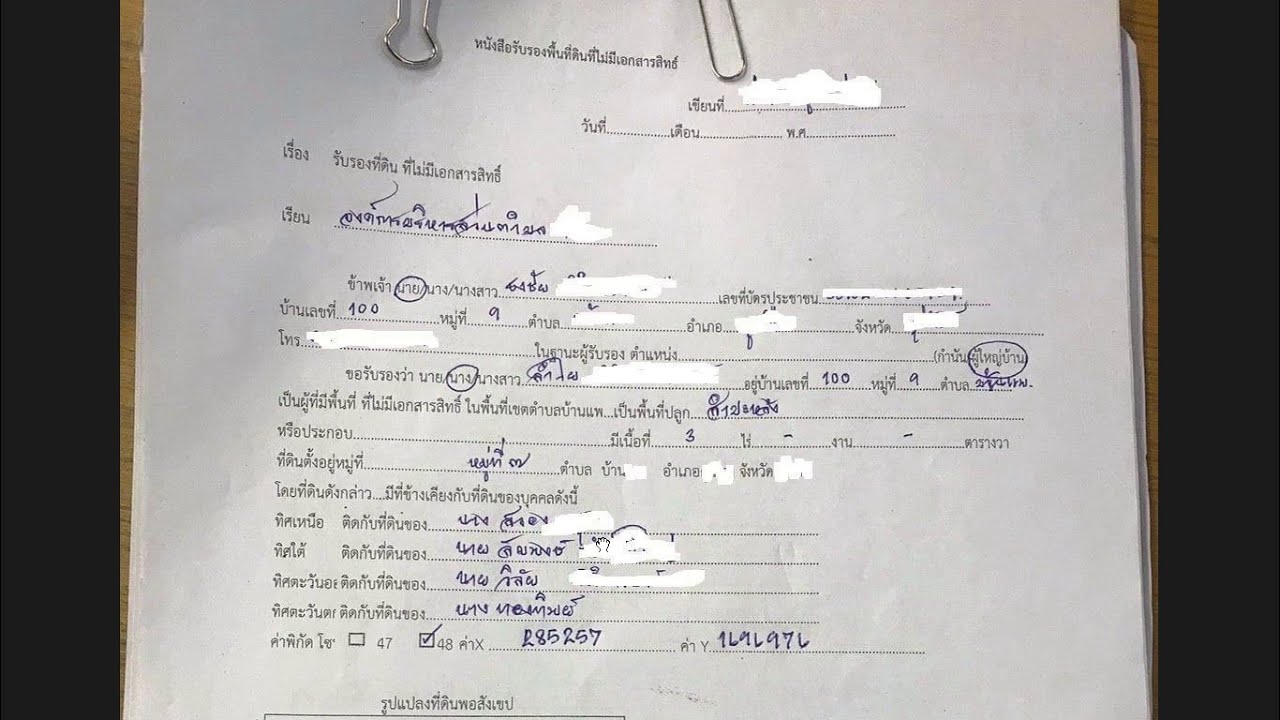 หนังสือรับรองพื้นที่ดินที่ไม่มีเอกสารสิทธ์
เขียนที่
วันที่ เดือน พ.ศ.
เรื่อง รับรองที่ดิน ที่ไม่มีเอกสารสิทธิ์
เรียน องค์การบริหารส่วนตำบล
ข้าพเจ้า นาย/นาง/นางสาว ธงชัย เลขที่บัตรประชาชน
บ้านเลขที่ 100 หมู่ที่ 9 ตำบล อำเภอ จังหวัด
โทร. ในฐานะผู้รับรอง ตำแหน่ง (กำนัน/ผู้ใหญ่บ้าน)
ขอรับรองว่า นาย/นาง/นางสาว ลำไย อยู่บ้านเลขที่ 100 หมู่ที่ 9 ตำบล บ้านแพ
เป็นผู้ที่มีพื้นที่ ที่ไม่มีเอกสารสิทธ์ ในพื้นที่เขตตำบลบ้านแพ...เป็นพื้นที่ปลูก
หรือประกอบ มีเนื้อที่ 3 ไร่ - งาน - ตารางวา
ที่ดินตั้งอยู่หมู่ที่ หมู่ที่ ๗ ตำบล บ้าน อำเภอ จังหวัด
โดยที่ดินดังกล่าว....มีที่ข้างเคียงกับที่ดินของบุคคลดังนี้
ทิศเหนือ ติดกับที่ดินของ นาง
ทิศใต้ ติดกับที่ดินของ นาย
ทิศตะวันออ ติดกับที่ดินของ นาย วิลัย
ทิศตะวันตก ติดกับที่ดินของ นาง ทองทิพย์
ค่าพิกัด โซ 47 48 ค่าX 285257 ค่า Y 1696976
รูปแปลงที่ดินพอสังเขป